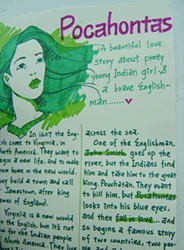 Pocahontas
A beautiful love
story about pretty
young Indian girl &
a brave English-
man......♥
In 1607 the Eng-
come to Virginia, in
North America. They want to
a new life, and to make
home in the new world.
build a town and call
Jamestown, after king
of England.
Virginia is a new world
the English, but it's not
for the Indian people
North America. They
across the sea.
One of the Englishman,
John Smith, goes up the
river, but the Indians find
him and take him to the great
King, Powhatan. They want
to kill him, but Pocahontas
looks into his blue eyes,
and then fall in love... and
so begins a famous story
of two countries, two pe